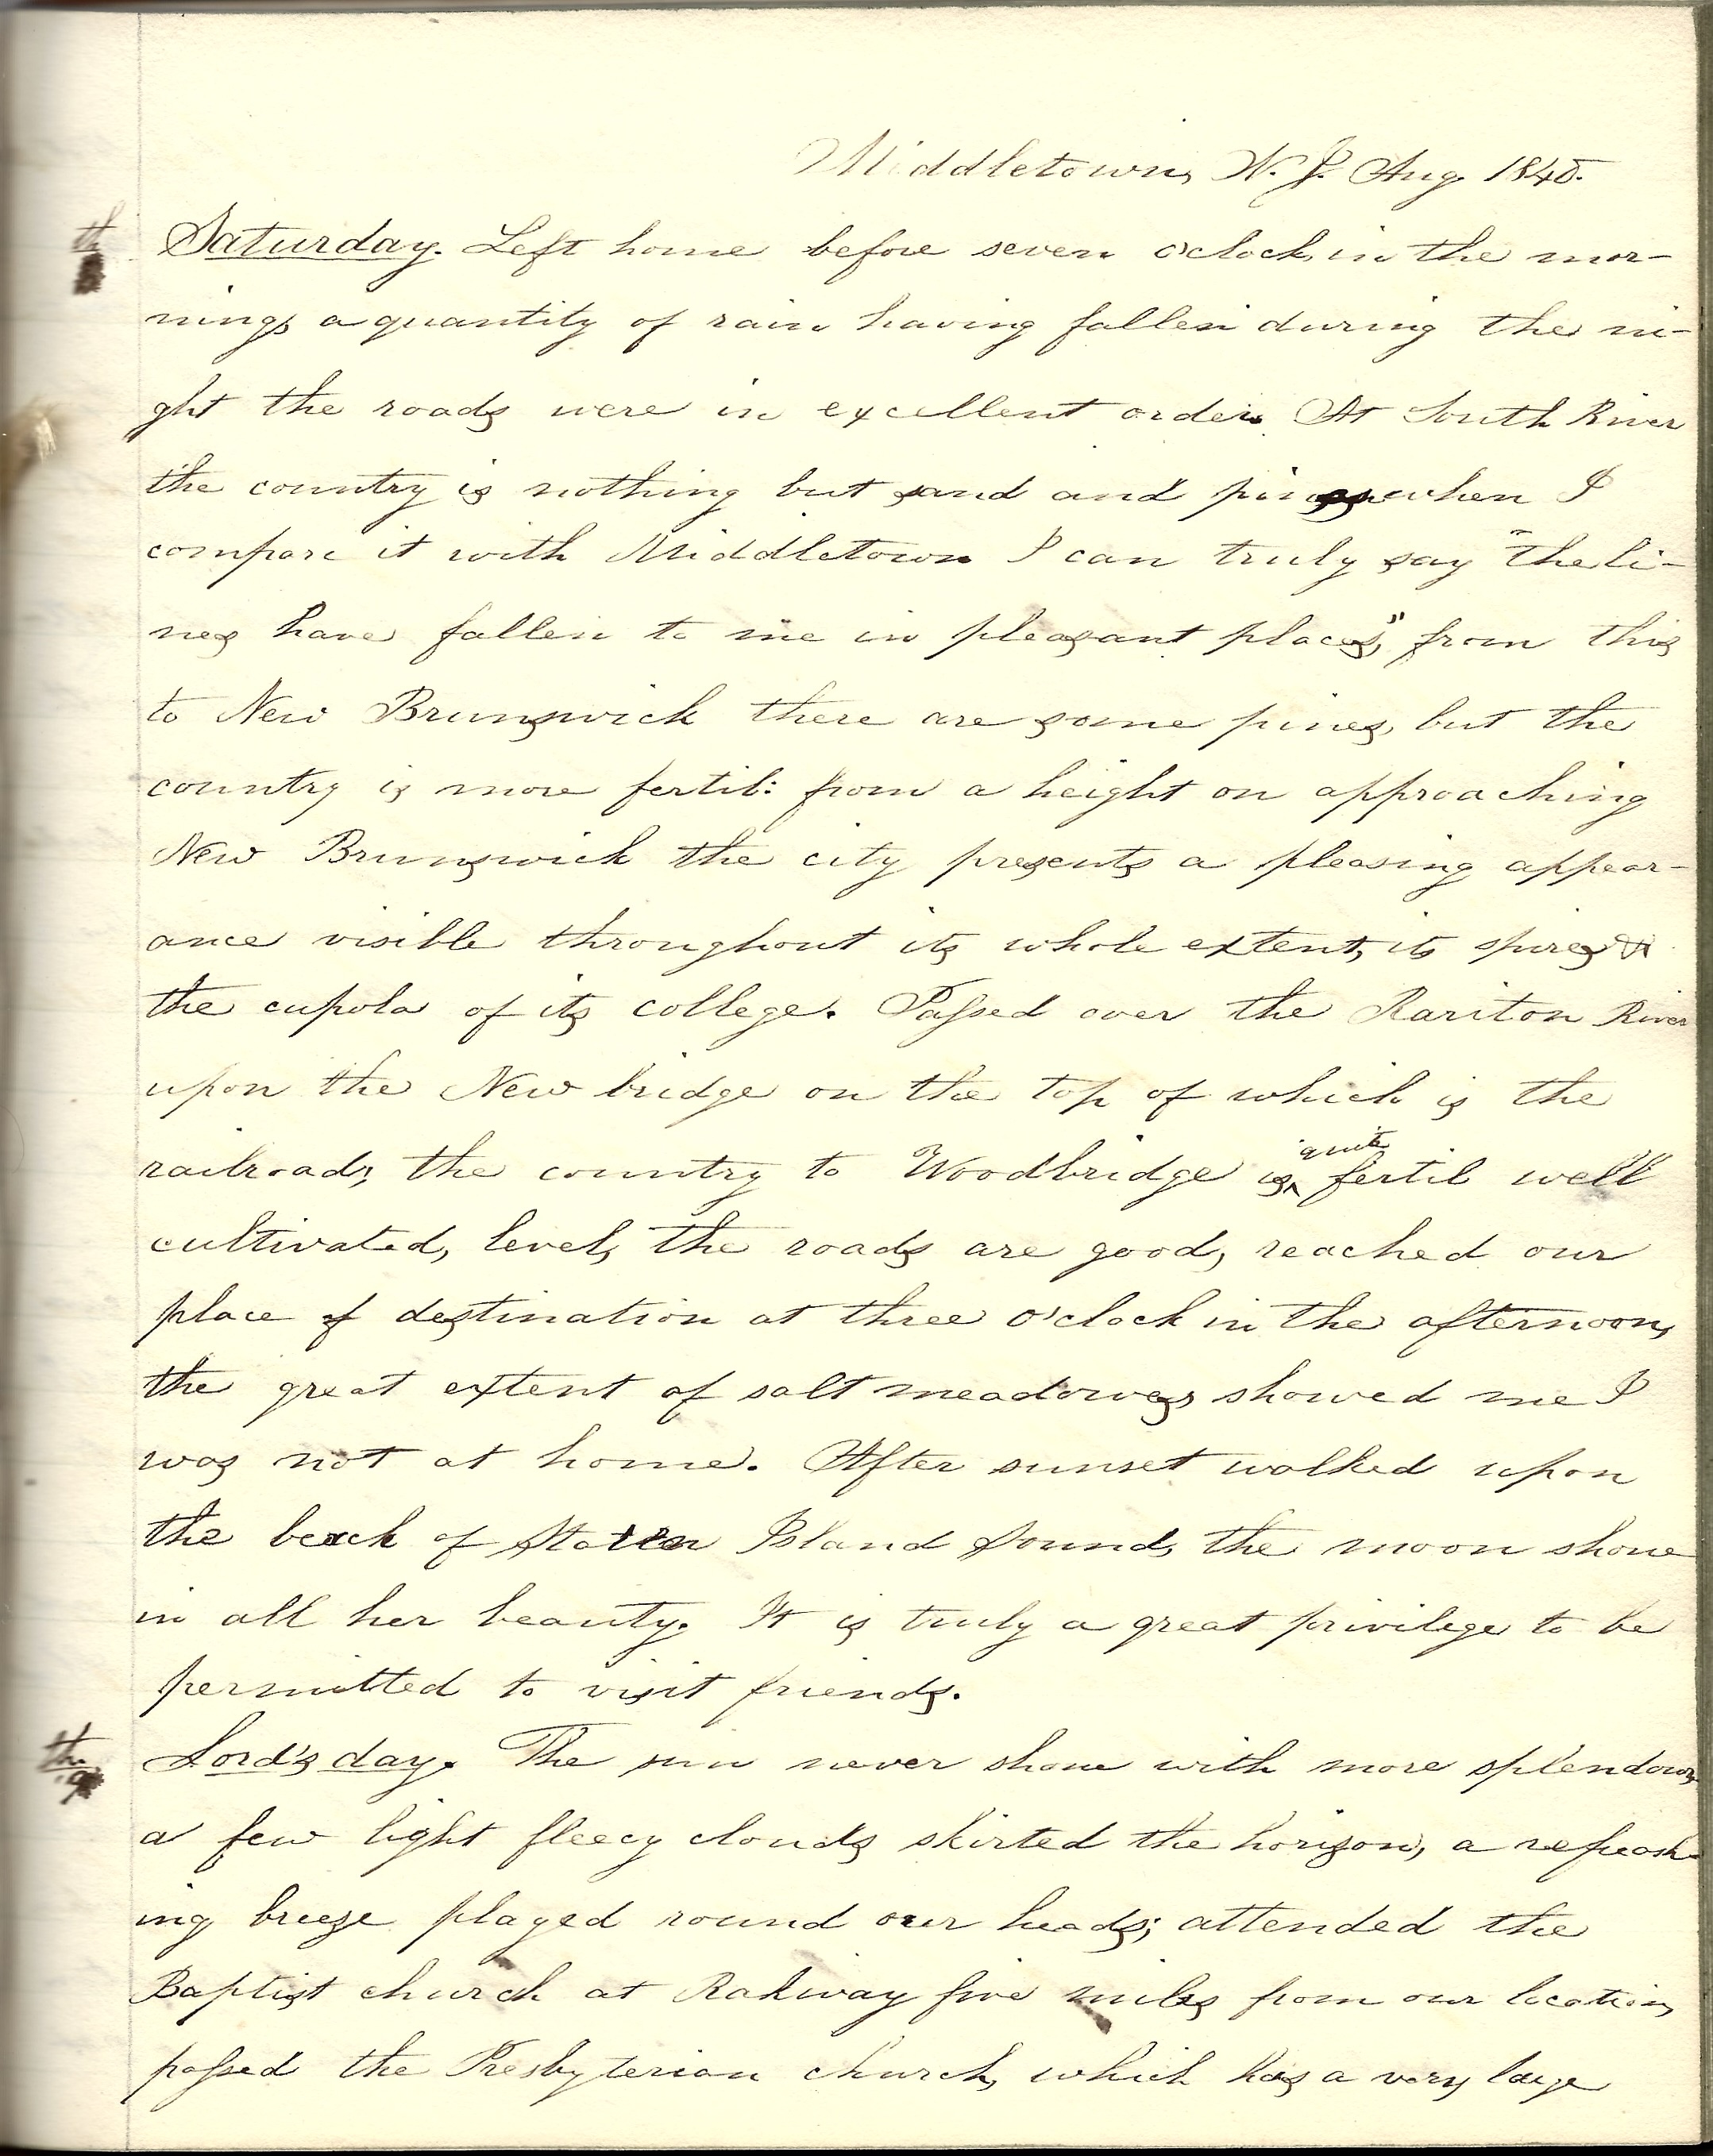 Middletown, N. J. Aug. 1840.
th Saturday. Left home before seven o'clock, in the mor-
ning, a quantity of rain having fallen during the ni-
ght the roads were in excellent order. At South River
the country is nothing but sand and pines when I
compare it with Middletown I can truly say "the li-
nes have fallen to me in pleasant places", from this
to New Brunswick there are some pines, but the
country is more fertil: from a height on approaching
New Brunswick the city presents a pleasing appear-
ance visible throughout its whole extent, its spires &
the cupola of its college. Passed over the Rariton River
upon the New bridge on the top of which is the
railroad, the country to Woodbridge is quite fertil well
cultivated, level, the roads are good, reached our
place of destination at three o'clock in the afternoon,
the great extent of salt meadowes, showed me I
was not at home. After sunset walked upon
the beach of Staten Island Sound, the moon shone
in all her beauty. It is truly a great privilege to be
permitted to visit friends.
th 9 Lord's day. The sun never shone with more splendour,
a few light fleecy clouds skirted the horizon, a refresh-
ing breeze played round our heads; attended the
Baptist church at Rahway five miles from our location,
passed the Presbyterian church, which has a very large